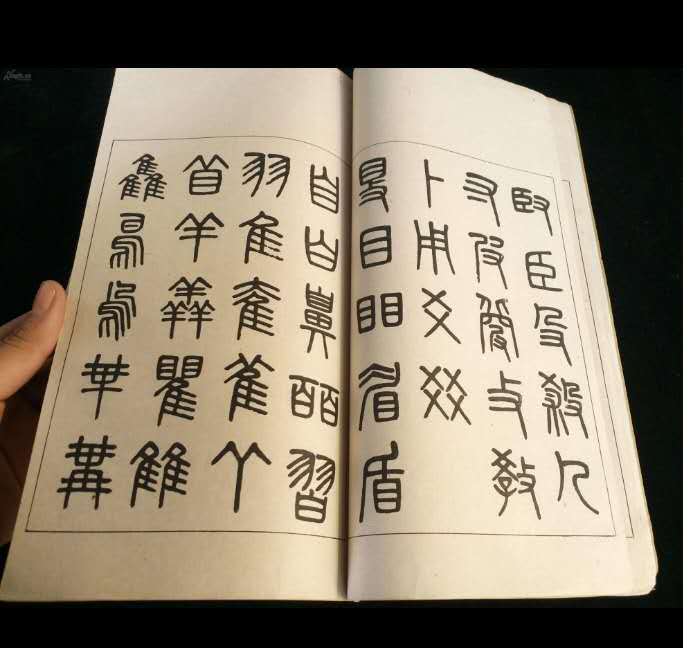 臤臣殳殺𠘧
寸皮㼱攴教
卜用爻㸚
𥄎目䀠眉盾
自白鼻皕習
羽隹奞雈𦫳
苜羊羴瞿雔
雥鳥烏𠦒冓